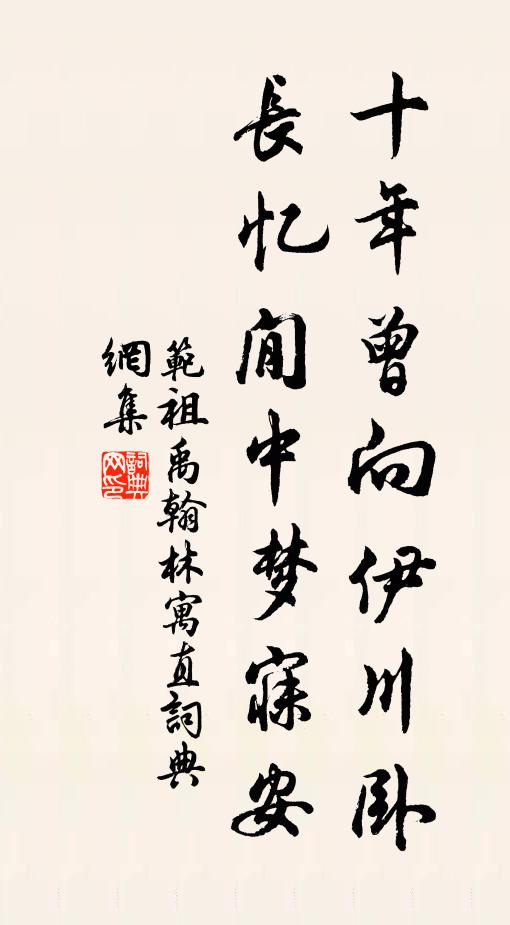 十年曾向伊川卧
長忆閒中梦寐安
範祖禹翰林寓直詞典
網集
詞典
网印